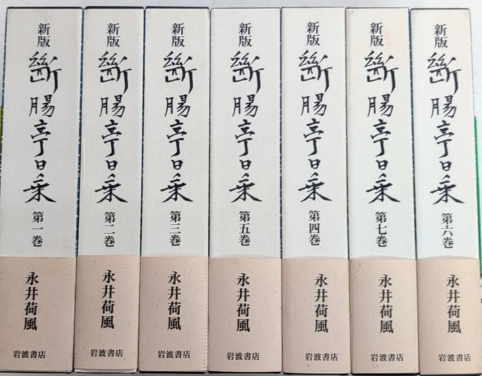 新版
斷腸亭日乗
第一巻
永井荷風
岩波書店
新版
斷腸亭日乗
第二巻
永井荷風
岩波書店
新版
斷腸亭日乗
第三巻
永井荷風
岩波書店
新版
斷腸亭日乗
第五巻
永井荷風
岩波書店
新版
斷腸亭日乗
第四巻
永井荷風
岩波書店
新版
斷腸亭日乗
第七巻
永井荷風
岩波書店
新版
斷腸亭日乗
第六巻
永井荷風
岩波書店